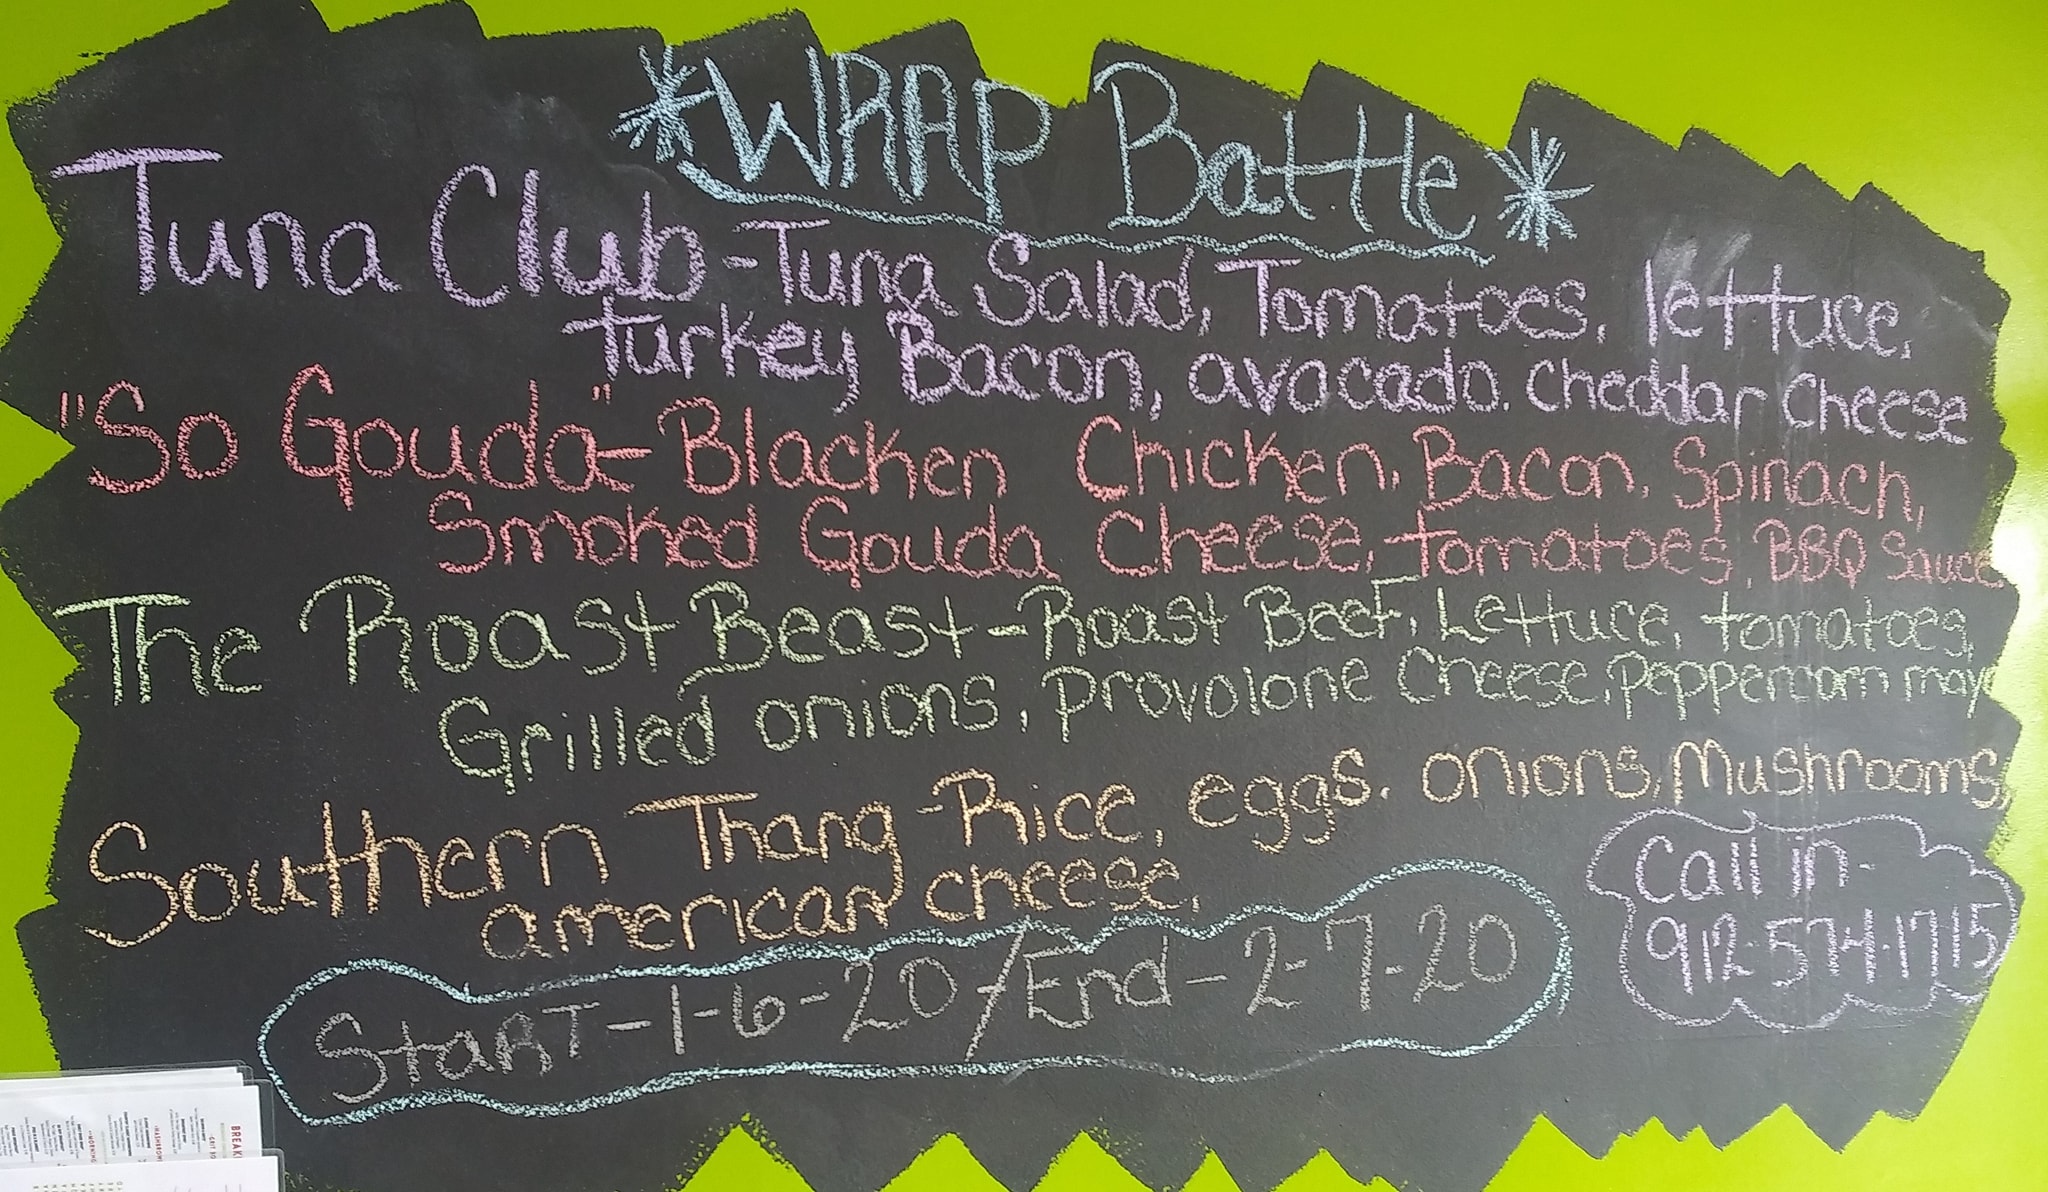 *WRAP Battle*
Tuna Club - Tuna Salad, Tomatoes, lettuce,
turkey Bacon, avocado. cheddar cheese
"So Gouda" - Blacken Chicken, Bacon, Spinach,
Smoked Gouda Cheese, tomatoes, BBQ Sauce
The Roast Beast - Roast Beef, Lettuce, tomatoes,
Grilled onions, provolone Cheese, Peppercorn mayo
Southern Thang - Rice, eggs. onions, Mushrooms,
american cheese,
Call in -
912-574-1715
StaRT - 1-6-20 / End - 2-7-20